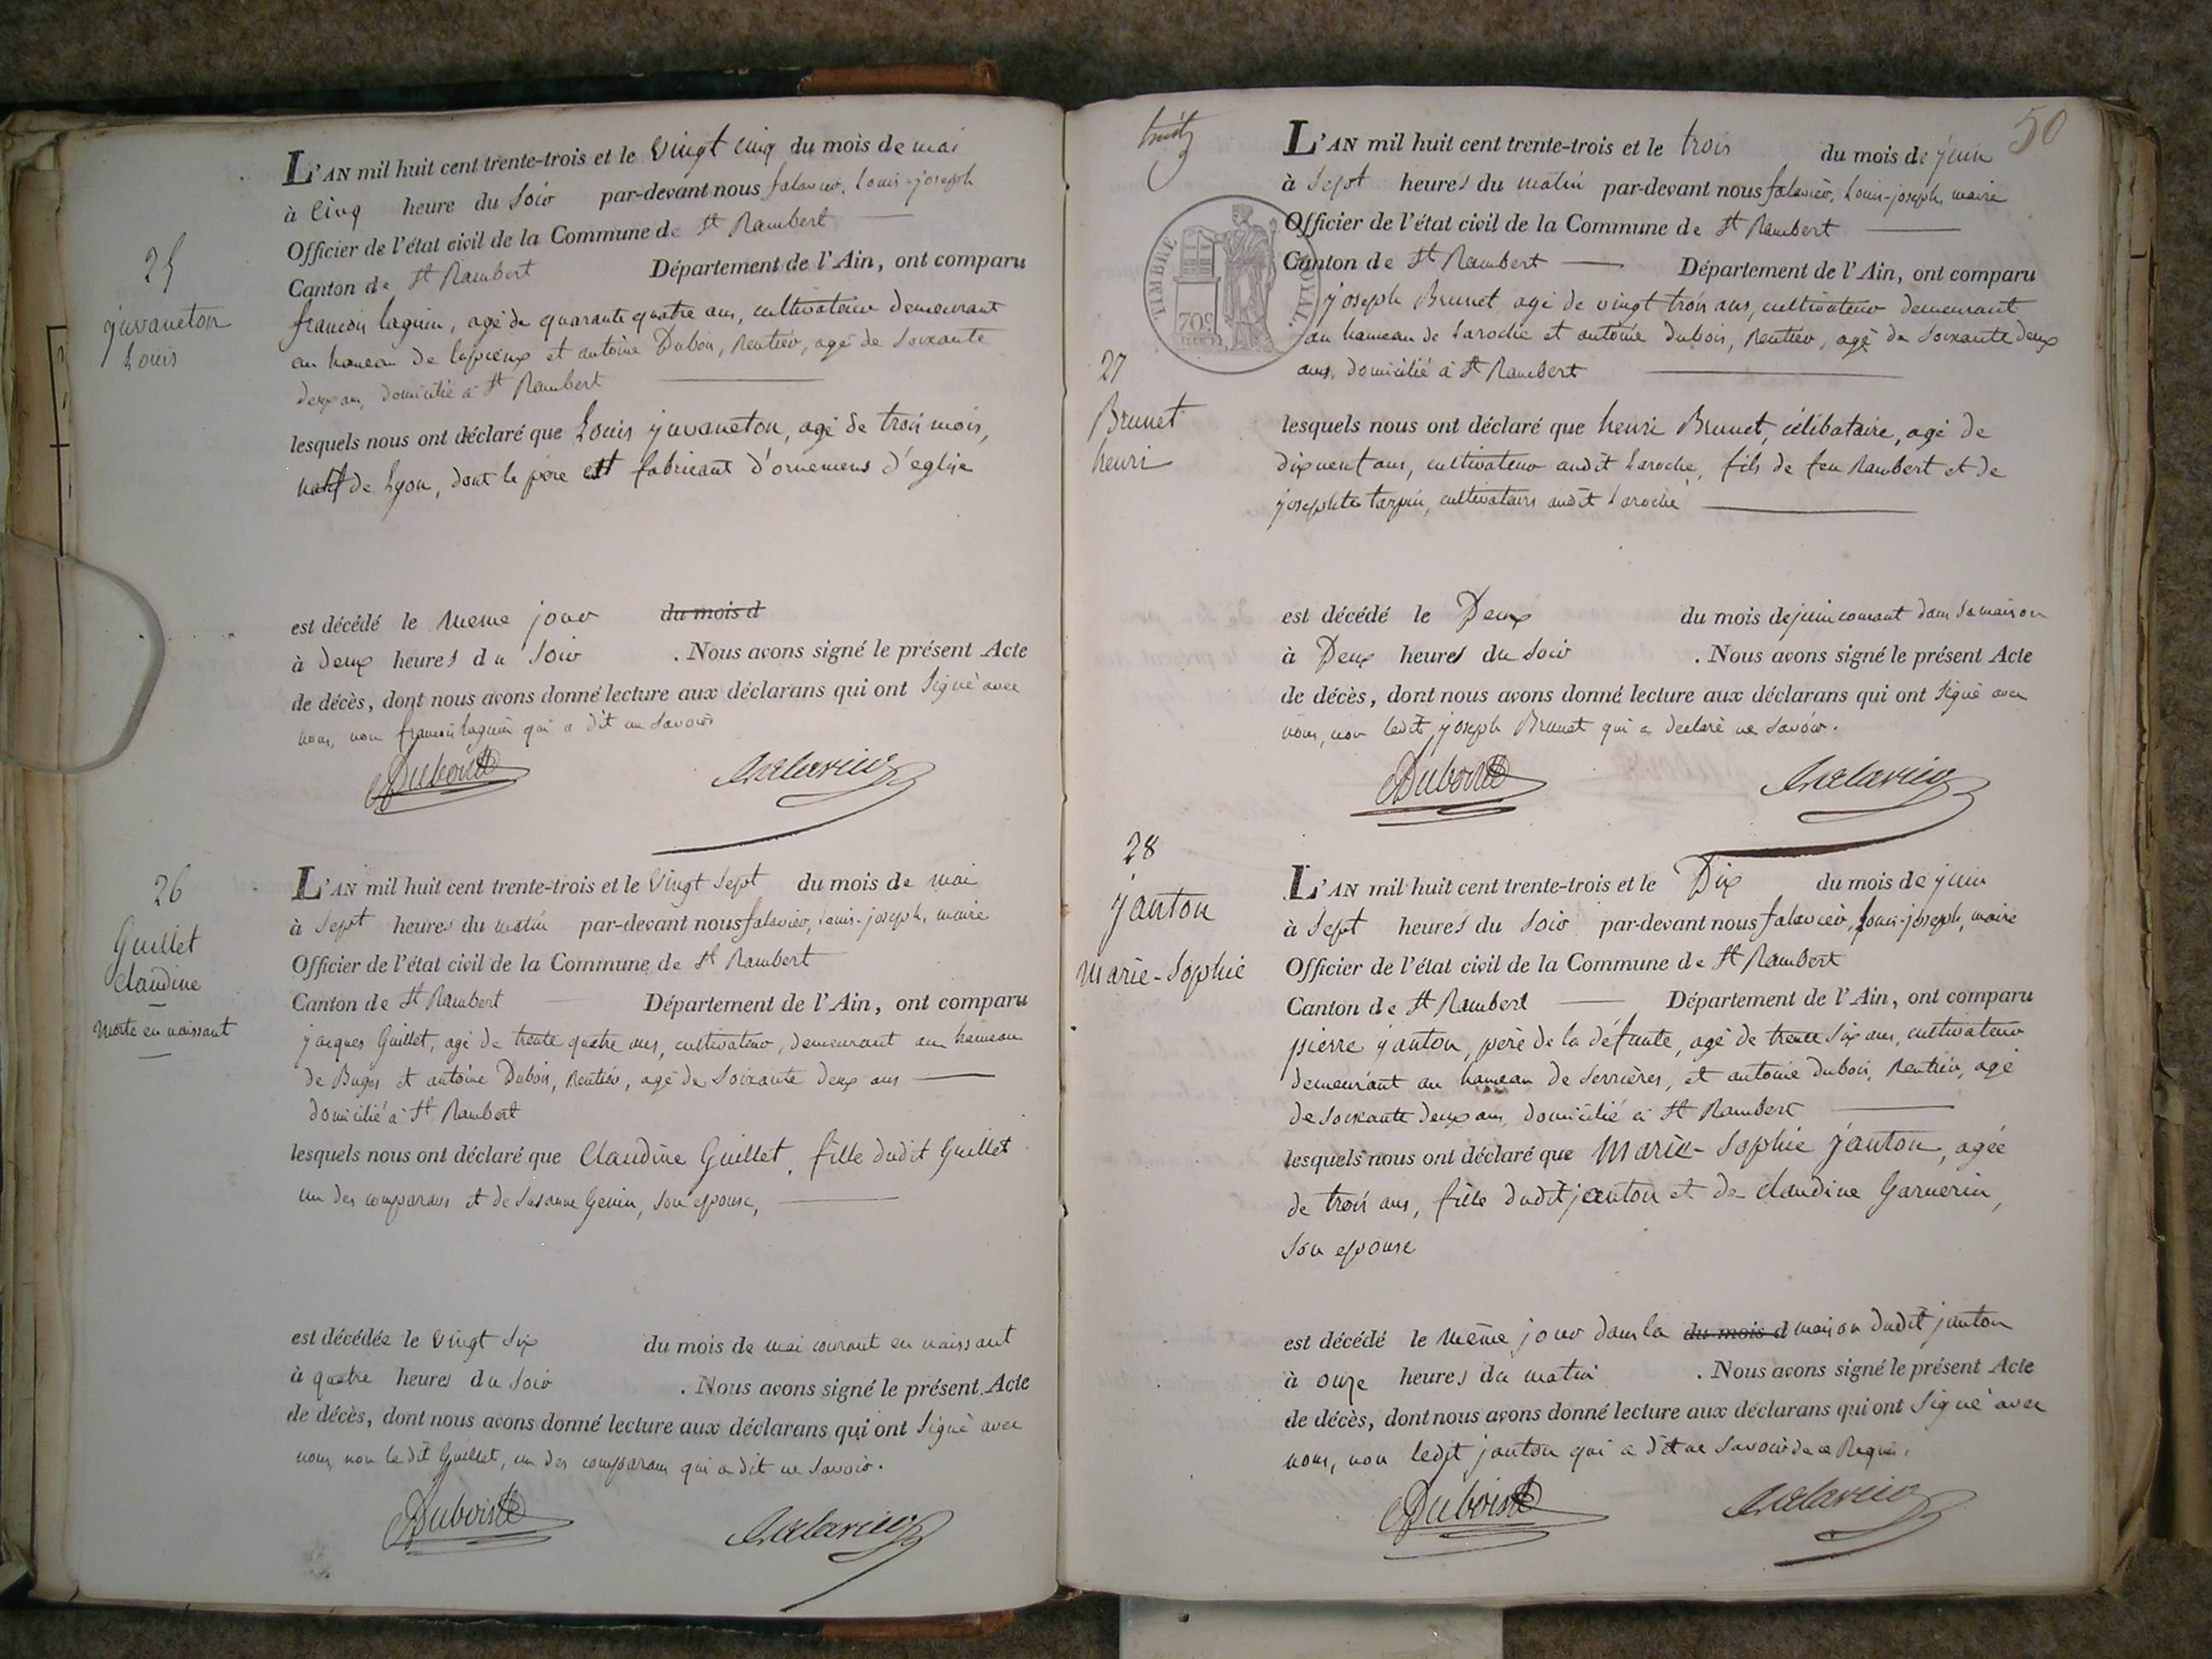 L'AN mil huit cent trente-trois et le vingt cinq du mois de mai
à cinq heure du soir par-devant nous falavier, Louis-joseph
Officier de l'état civil de la Commune de St Rambert
Canton de St Rambert Département de l'Ain, ont comparu
25
juvaneton
Louis
francois laguin, agé de quarante quatre ans, cultivateur demeurant
au hameau de et antoine Dubois, Rentier, agé de soixante
deux ans, domicilié à St Rambert
lesquels nous ont déclaré que Louis juvaneton, agé de trois mois,
natif de Lyon, dont le père est fabricant d'ornemens d'eglise
est décédé le meme jour du mois d
à deux heures du soir . Nous avons signé le présent Acte
de décès, dont nous avons donné lecture aux déclarans qui ont signé avec
nous, non francois laguin qui a dit ne savoir
Dubois
falavier
26
Guillet
claudine
morte en naissant
L'AN mil huit cent trente-trois et le vingt sept du mois de mai
à sept heures du matin par-devant nous falavier, Louis-joseph, maire
Officier de l'état civil de la Commune de St Rambert
Canton de St Rambert Département de l'Ain, ont comparu
jacques Guillet, agé de trente quatre ans, cultivateur, demeurant au hameau
de Buges et antoine Dubois, Rentier, agé de soixante deux ans
domicilié à St Rambert
lesquels nous ont déclaré que Claudine Guillet, fille dudit Guillet
un des comparans et de Susanne Genin, son epouse,
est décédée le vingt six du mois de mai courant en naissant
à quatre heures du soir . Nous avons signé le présent Acte
de décès, dont nous avons donné lecture aux déclarans qui ont signé avec
nous, non le dit Guillet, un des comparans qui a dit ne savoir.
Dubois
falavier
50
TIMBRE ROYAL
70c
L'AN mil huit cent trente-trois et le trois du mois de juin
à sept heures du matin par-devant nous falavier, Louis-joseph, maire
Officier de l'état civil de la Commune de St Rambert
Canton de St Rambert Département de l'Ain, ont comparu
joseph Brunet agé de vingt trois ans, cultivateur demeurant
au hameau de Laroche et antoine dubois, Rentier, agé de soixante deux
ans, domicilié à St Rambert
27
Brunet
henri
lesquels nous ont déclaré que henri Brunet, célibataire, agé de
dix neuf ans, cultivateur audit Laroche, fils de feu Rambert et de
josephte tarpin, cultivateurs audit Laroche
est décédé le Deux du mois de juin courant dans sa maison
à Deux heures du soir . Nous avons signé le présent Acte
de décès, dont nous avons donné lecture aux déclarans qui ont signé avec
nous, non ledit joseph Brunet qui a declaré ne savoir.
Dubois
falavier
28
janton
Marie-Sophie
L'AN mil huit cent trente-trois et le Dix du mois de juin
à sept heures du soir par-devant nous falavier, Louis-joseph, maire
Officier de l'état civil de la Commune de St Rambert
Canton de St Rambert Département de l'Ain, ont comparu
pierre janton, père de la défunte, agé de trente six ans, cultivateur
demeurant au hameau de Serrières, et antoine dubois, Rentier, agé
de soixante deux ans, domicilié à St Rambert
lesquels nous ont déclaré que Marie-Sophie janton, agée
de trois ans, fille dudit janton et de claudine Garnerin,
son epouse
est décédé le même jour dans la du mois d maison dudit janton
à onze heures du matin . Nous avons signé le présent Acte
de décès, dont nous avons donné lecture aux déclarans qui ont signé avec
nous, non ledit janton qui a dit ne savoir de ce Requis.
Dubois
falavier